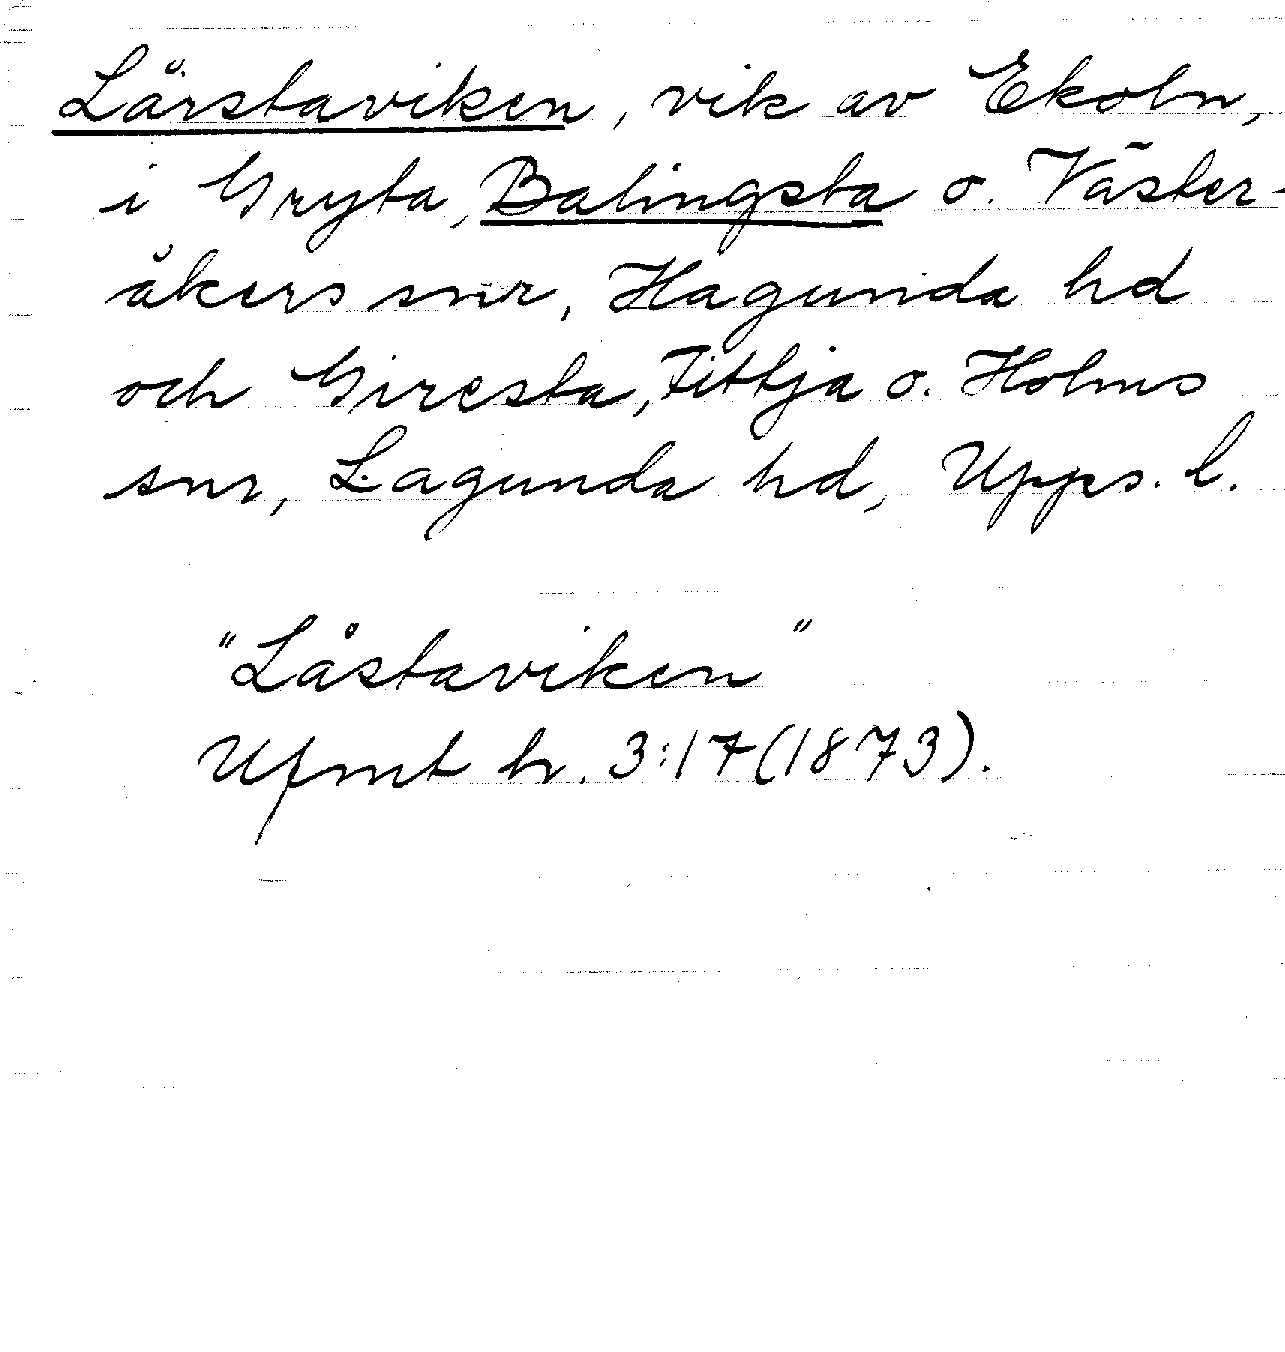 Lårstaviken, vik av Ekoln,
i Gryta, Balingsta o. Väster-
åkers snr, Hagunda hd
och Giresta, Fittja o. Holms
snr, Lagunda hd, Upps. l.
"Låstaviken"
Ufmt h. 3:17 (1873).